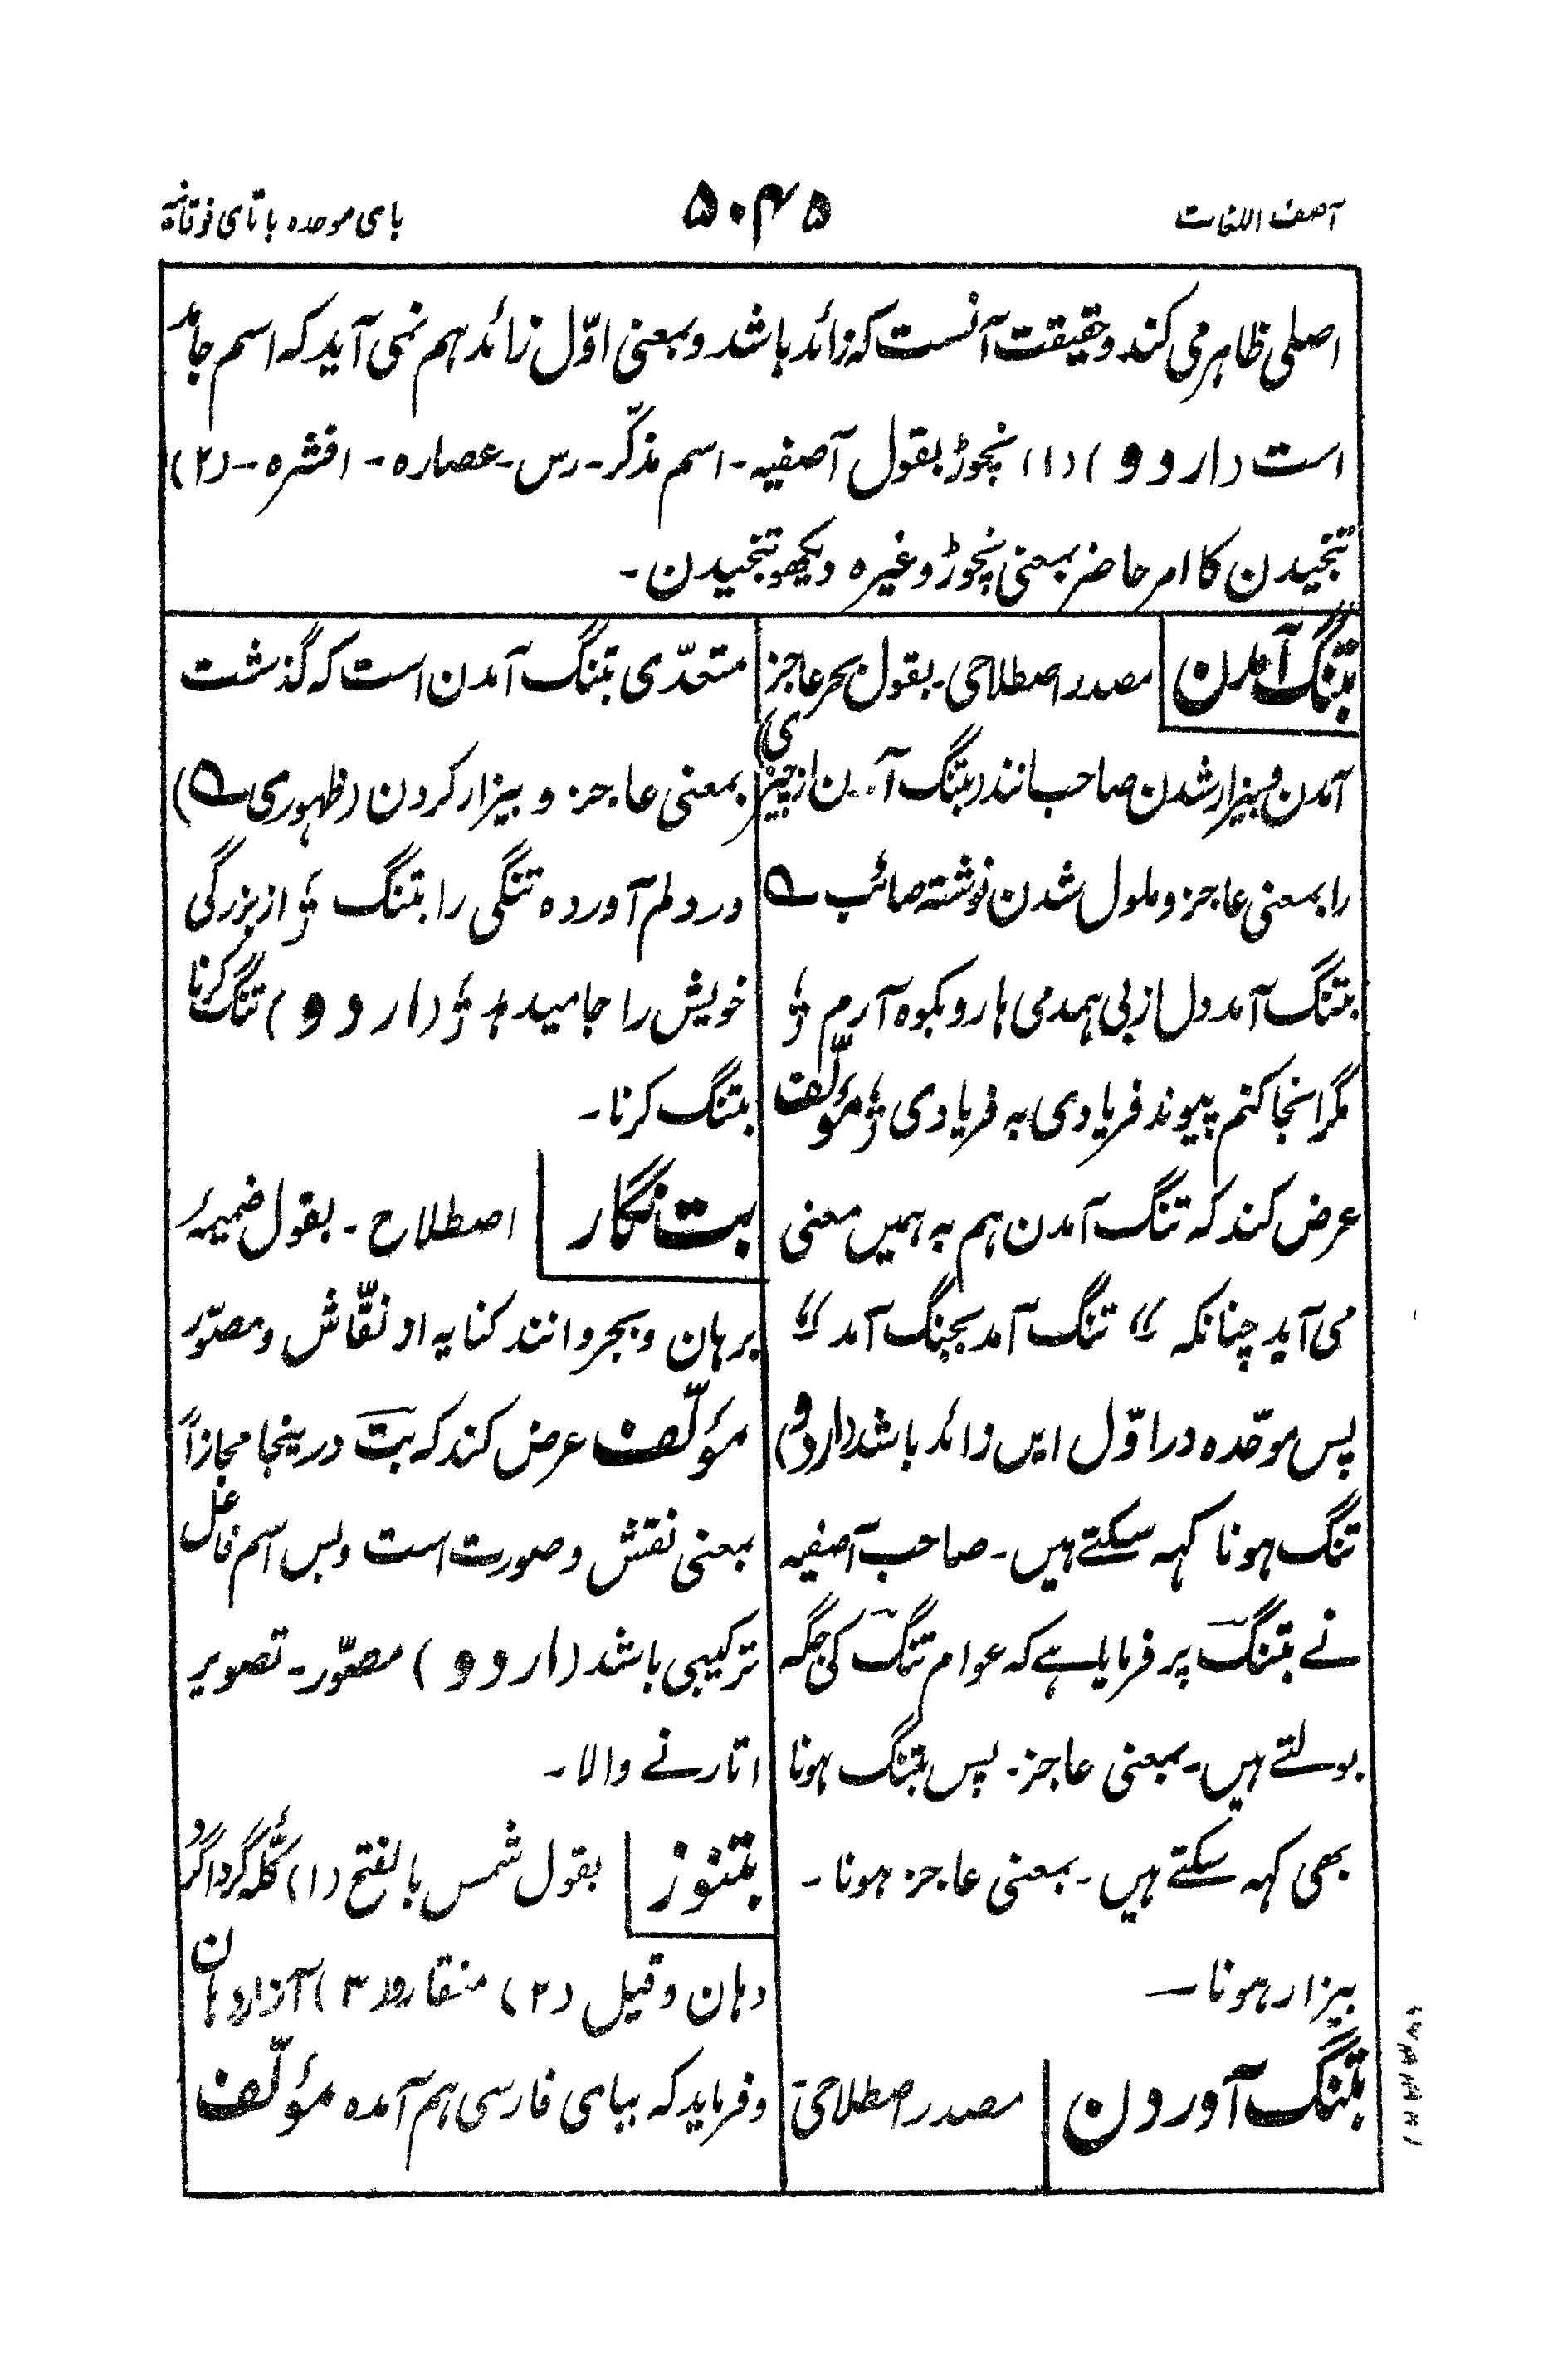 آصف اللغات
۵۰۴۵
بای موحده با تای فوقانیہ
اصلی ظاہر می کند و حقیقت آنست که زائد باشد و بمعنی اوّل زائد ہم نمی آید که اسم جامد
است (اردو) (۱) نچوڑ بقول آصفیہ ۔ اسم مذکّر ۔ رس ۔ عصارہ ۔ افشرہ ۔ (۲)
تنجیدن کا امر حاضر بمعنی نچوڑ وغیرہ دیکھو تنجیدن ۔
بتنگ آمدن | مصدر اصطلاحی ۔ بقول بحر عاجز
آمدن و بیزار شدن صاحب انند (بتنگ آمدن از چیزی)
را بمعنی عاجز و ملول شدن نوشته صائب ؎
بتنگ آمد دل از بی ہمدمی ہا رو بکوہ آرم ؛
مگر انجا کنم پیوند فریادی بہ فریادی ؛ مؤلّف
عرض کند که تنگ آمدن ہم بہ ہمیں معنی
می آید چنانکہ " تنگ آمد بجنگ آمد "
پس موحّدہ در اوّل ایں زائد باشد (اردو)
تنگ ہونا کہہ سکتے ہیں ۔ صاحب آصفیہ
نے بتنگ پر فرمایا ہے کہ عوام تنگ کی جگہ
بولتے ہیں ۔ بمعنی عاجز ۔ پس بتنگ ہونا
بھی کہہ سکتے ہیں ۔ بمعنی عاجز ہونا ۔
بیزار ہونا ۔
بتنگ آوردن | مصدر اصطلاحی ۔
متعدّی بتنگ آمدن است کہ گذشت
بمعنی عاجز و بیزار کردن (ظہوری ؎)
در دلم آورده تنگی را بتنگ ؛ از بزرگی
خویش را جا میدہد ؛ (اردو) تنگ کرنا
بتنگ کرنا ۔
بت نگار | اصطلاح ۔ بقول ضمیمۂ
برہان و بحر و انند کنایہ از نقّاش و مصوّر
مؤلّف عرض کند کہ بت درینجا مجازاً
بمعنی نقش و صورت است و بس اسم فاعل
ترکیبی باشد (اردو) مصوّر ۔ تصویر
اتارنے والا ۔
بتنوز | بقول شمس بالفتح (۱) کلّۂ گرداگرد
دہان و قیل (۲) منقار و (۳) آزار دہان
و فرماید کہ ببای فارسی ہم آمدہ مؤلّف